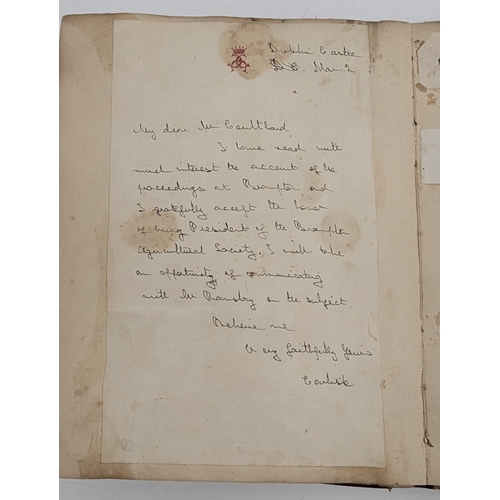 Dublin Castle
Mar 2
My dear Mr Coulthard
I have read with
much interest the account of the
proceedings at Brampton and
I gratefully accept the honor
of being President of the Brampton
Agricultural Society. I will take
an opportunity of communicating
with Mr Ramsay on the subject
Believe me
Very faithfully Yours
Carlisle